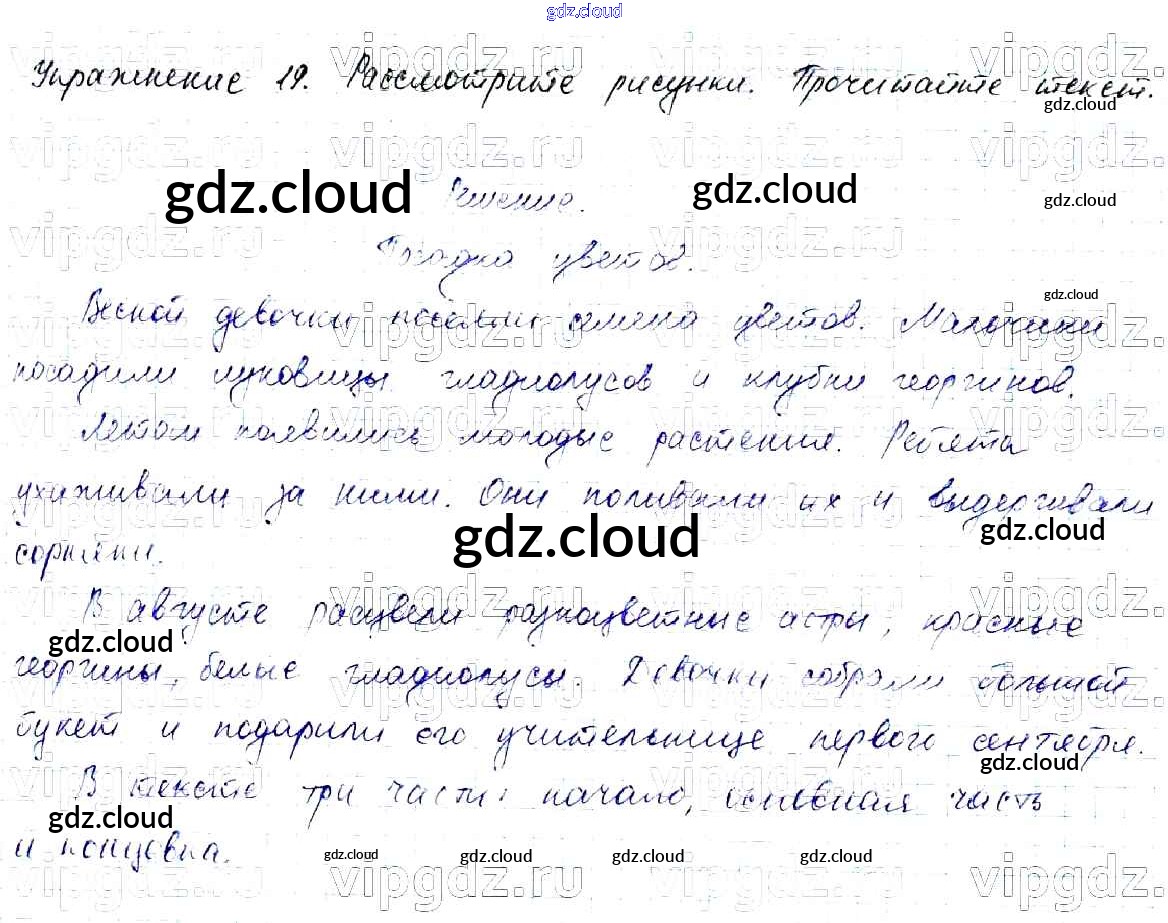 gdz.cloud
Упражнение 19. Рассмотрите рисунки. Прочитайте текст.
gdz.cloud
vipgdz.ru vipgdz.ru vipgdz.ru vipgdz.
gdz.cloud Решение. gdz.cloud gdz.cloud
Посадка цветов.
gdz.cloud
Весной девочки посеяли семена цветов. Мальчики
посадили луковицы гладиолусов и клубни георгинов.
Летом появились молодые растения. Ребята
ухаживали за ними. Они поливали их и выдергивали
gdz.cloud gdz.cloud
сорняки.
В августе расцвели разноцветные астры, красные
gdz.cloud
георгины, белые гладиолусы. Девочки собрали большой
букет и подарили его учительнице первого сентября.
gdz.cloud
В тексте три части: начало, основная часть
gdz.cloud
и концовка.
gdz.cloud gdz.cloud gdz.cloud gdz.cloud
vipgdz.ru vipgdz.ru vipgdz.ru vipgdz.